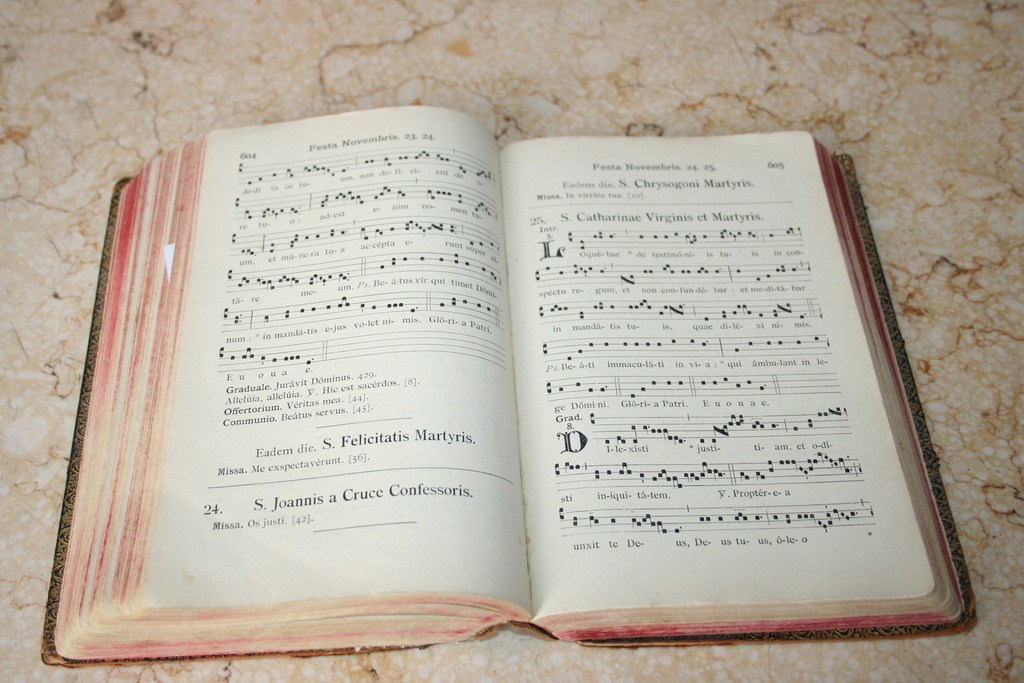 604
Festa Novembris. 23. 24.
de-di in os tu- um, non de-fi- ci- ent de a-
re tu- o : ad-est e- nim no-men tu-
um, et mú-ne-ra tu-a ac-cépta e- runt super al-
tá- re me- um. Ps. Be-á-tus vir qui timet Dómi-
num : * in mandá-tis e-jus vo-let ni- mis. Gló-ri- a Patri.
E u o u a e.
Graduale. Jurávit Dóminus. 429.
Allelúia, allelúia. ℣. Hic est sacérdos. [8].
Offertorium. Véritas mea. [44].
Communio. Beátus servus. [45].
Eadem die. S. Felicitatis Martyris.
Missa. Me exspectavérunt. [56].
24. S. Joannis a Cruce Confessoris.
Missa. Os justi. [42].
Festa Novembris. 24, 25.
605
Eadem die. S. Chrysogoni Martyris.
Missa. In virtúte tua. [10].
25. S. Catharinae Virginis et Martyris.
Intr.
5.
L Oqué-bar * de testimó-ni- is tu- is in con-
spéctu re- gum, et non con-fun-dé-bar : et me-di-tá-bar
in mandá-tis tu- is, quae di-lé- xi ni- mis.
Ps. Be- á-ti immacu-lá-ti in vi- a : * qui ámbu-lant in le-
ge Dómi-ni. Gló-ri- a Patri. E u o u a e.
Grad.
8.
D I-le-xísti * justí- ti- am, et o-dí-
sti in-iqui- tá-tem. ℣. Proptér- e- a
unxit te De- us, De- us tu- us, ó-le- o